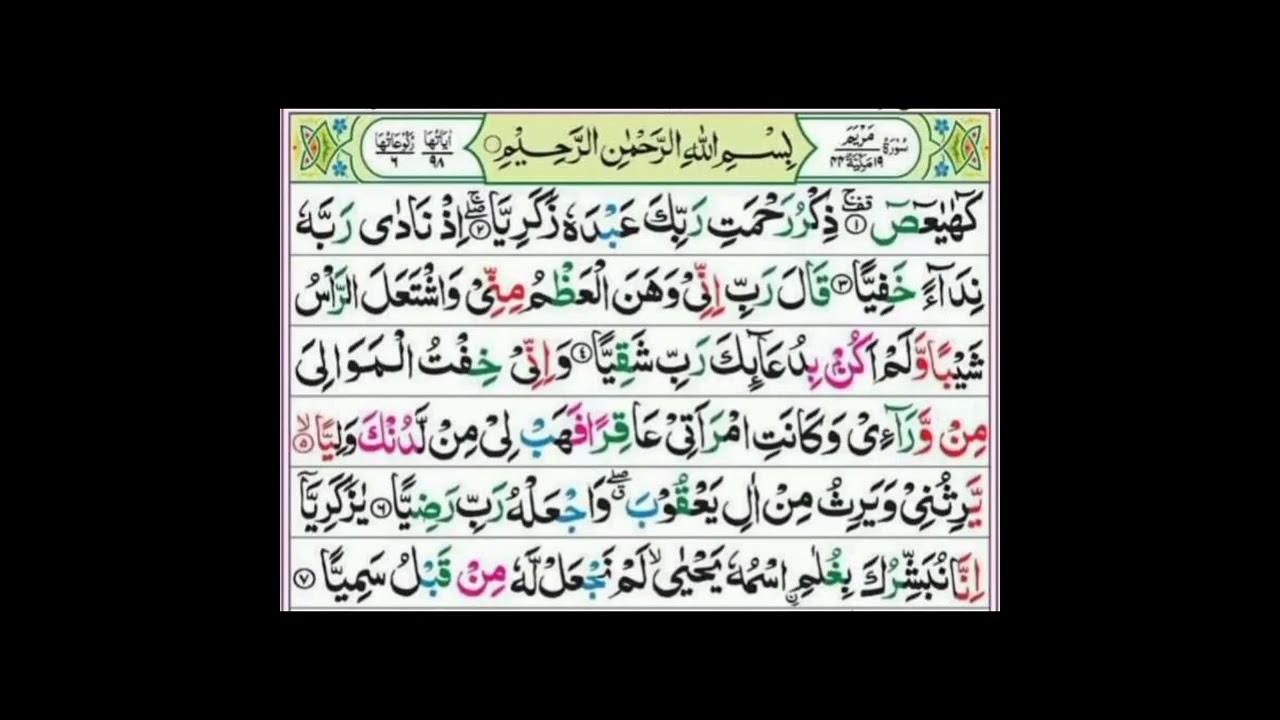 سُوْرَةُ مَرْيَمَ ١٩ مَكِّيَّةٌ ٤٤
بِسْمِ اللهِ الرَّحْمٰنِ الرَّحِيْمِ
اٰيَاتُهَا ٩٨ رُكُوْعَاتُهَا ٦
كٓهٰيٰعٓصٓ ۚ﴿١﴾ ذِكْرُ رَحْمَتِ رَبِّكَ عَبْدَهٗ زَكَرِيَّا ۖۚ﴿٢﴾ اِذْ نَادٰى رَبَّهٗ
نِدَآءً خَفِيًّا ﴿٣﴾ قَالَ رَبِّ اِنِّىْ وَهَنَ الْعَظْمُ مِنِّىْ وَاشْتَعَلَ الرَّاْسُ
شَيْبًا وَّلَمْ اَكُنْۢ بِدُعَآئِكَ رَبِّ شَقِيًّا ﴿٤﴾ وَاِنِّىْ خِفْتُ الْمَوَالِىَ
مِنْ وَّرَآءِىْ وَكَانَتِ امْرَاَتِىْ عَاقِرًا فَهَبْ لِىْ مِنْ لَّدُنْكَ وَلِيًّا ۙ﴿٥﴾
يَّرِثُنِىْ وَيَرِثُ مِنْ اٰلِ يَعْقُوْبَ ۖ وَاجْعَلْهُ رَبِّ رَضِيًّا ﴿٦﴾ يٰزَكَرِيَّآ
اِنَّا نُبَشِّرُكَ بِغُلٰمِ ۨاسْمُهٗ يَحْيٰى ۙ لَمْ نَجْعَلْ لَّهٗ مِنْ قَبْلُ سَمِيًّا ﴿٧﴾